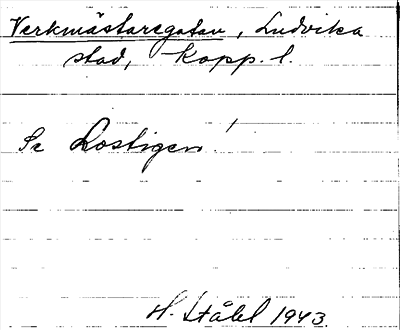 Verkmästaregatan, Ludvika
stad, Kopp. l.
Se Lostigen!
H. Ståhl 1943